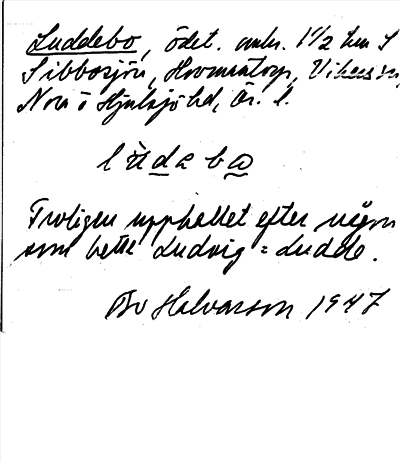 Luddebo, ödet. omkr. 1 1/2 km S
Sibbosjön, Hovmantorp,
Nora o Hjulsjö hd, Ör. l.
lùdabo
Troligen uppkallet efter någon
som hette Ludvig = Ludde.
Bo Halvarson 1947